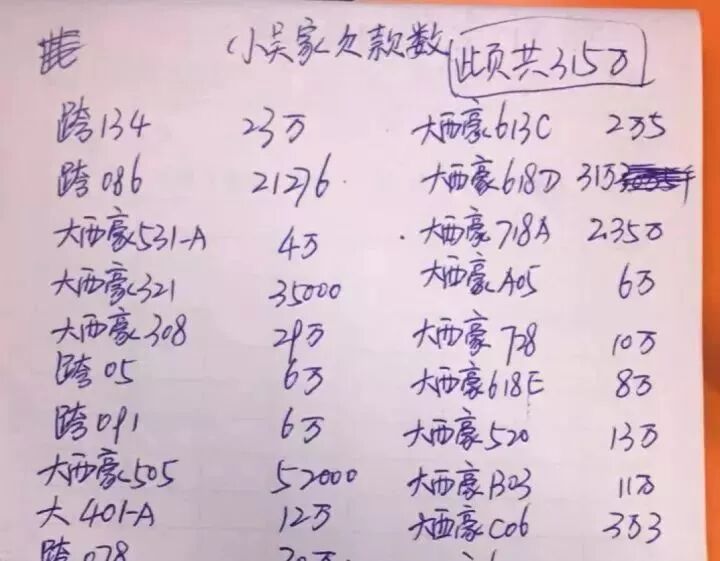 小吴家欠款数 此页共315万
跨134 23万 大西豪613C 2万5
跨086 21276 大西豪618D 31万3
大西豪531-A 4万 大西豪718A 235万
大西豪321 35000 大西豪A05 6万
大西豪308 29万 大西豪728 10万
跨05 6万 大西豪618E 8万
跨091 6万 大西豪520 13万
大西豪505 52000 大西豪B03 11万
大401-A 12万 大西豪C06 3万3
跨078